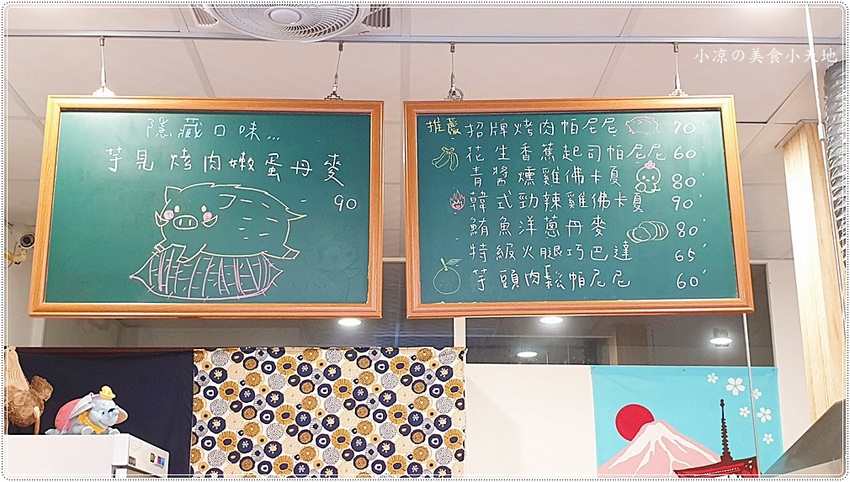 小凉の美食小天地
隱藏口味...
芋見烤肉嫩蛋丹麥
90
推薦 招牌烤肉帕尼尼 70
花生香蕉起司帕尼尼 60
青醬燻雞佛卡夏 80
韓式勁辣雞佛卡夏 90
鮪魚洋蔥丹麥 80
特級火腿巧巴達 65
芋頭肉鬆帕尼尼 60